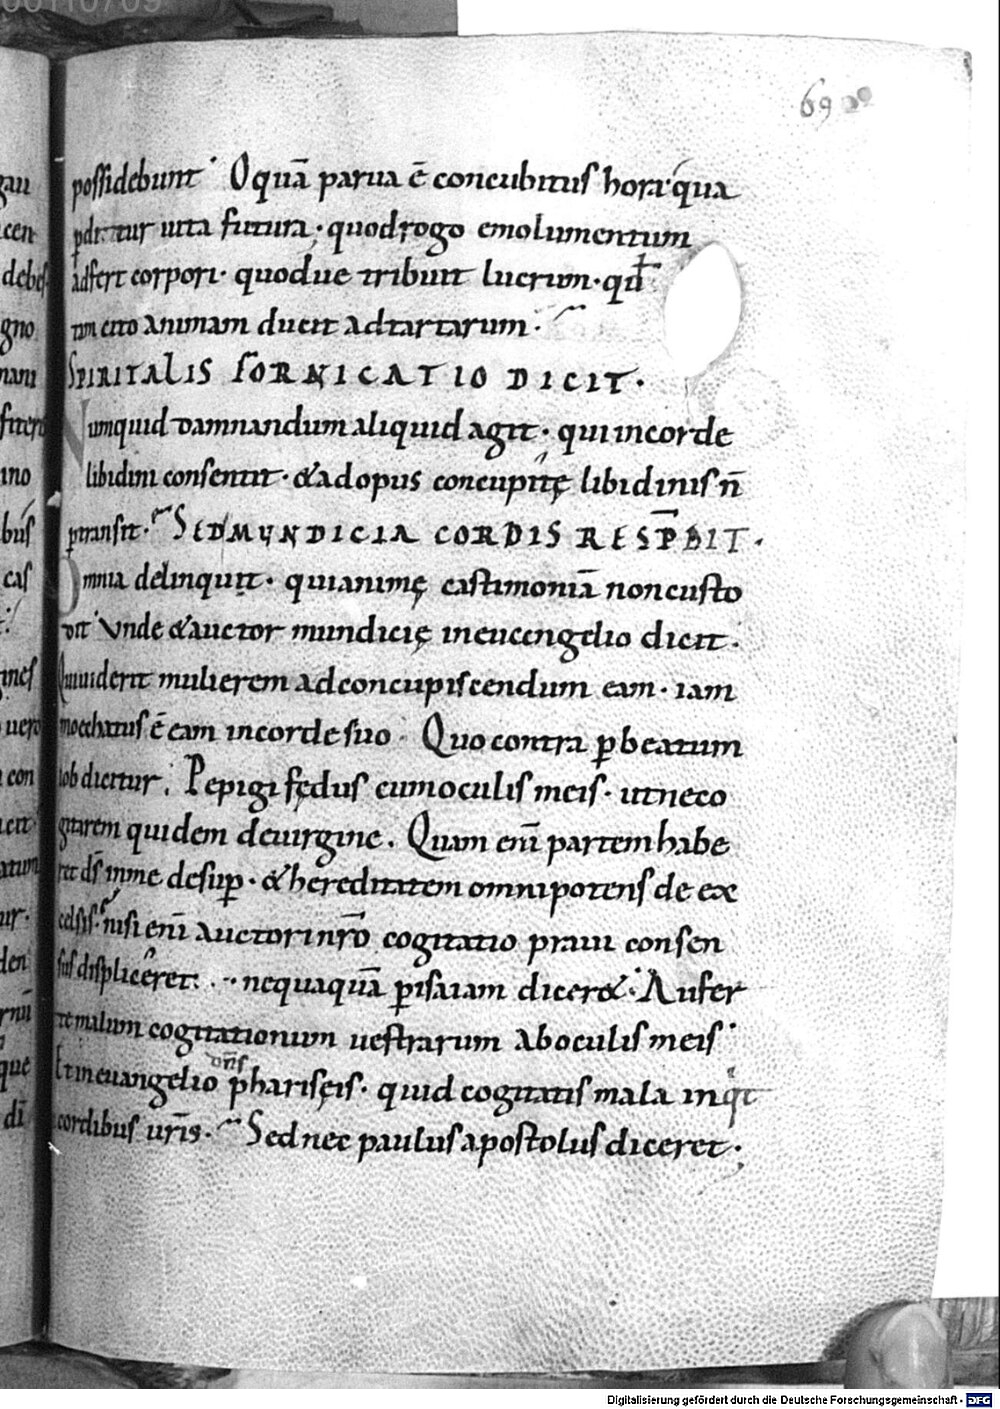 69
possidebunt. O quā parua ē concubitus hora qua
pditur uita futura; quod rogo emolumentum
adfert corpori. quodue tribuit lucrum. qd̄
tam cito animam ducit ad tartarum.
SPIRITALIS FORNICATIO DICIT.
Numquid damnandum aliquid agit. qui in corde
libidini consentit. & ad opus concupitę libidinis n̄
ptransit. SED MUNDICIA CORDIS RESPD̄IT.
Omnia delinquit. qui animę castimoniā non custo
dit. Vnde & auctor mundicię in euuangelio dicit.
Qui uiderit mulierem ad concupiscendum eam. iam
moechatus ē eam in corde suo. Quo contra p beatum
iob dicitur; Pepigi fędus cum oculis meis. ut ne co
gitarem quidem de uirgine. Quam eni partem habe
ret ds̄ in me desup. & hereditatem omnipotens de ex
celsis. nisi eni auctori nr̄o cogitatio praui consen
sus displiceret. nequaquā p isaiam diceret. Aufer
te malum cogitationum uestrarum ab oculis meis.
Et in euangelio phariseis. quid cogitatis mala inqt
cordibus uris. Sed nec paulus apostolus diceret.
Digitalisierung gefördert durch die Deutsche Forschungsgemeinschaft - DFG